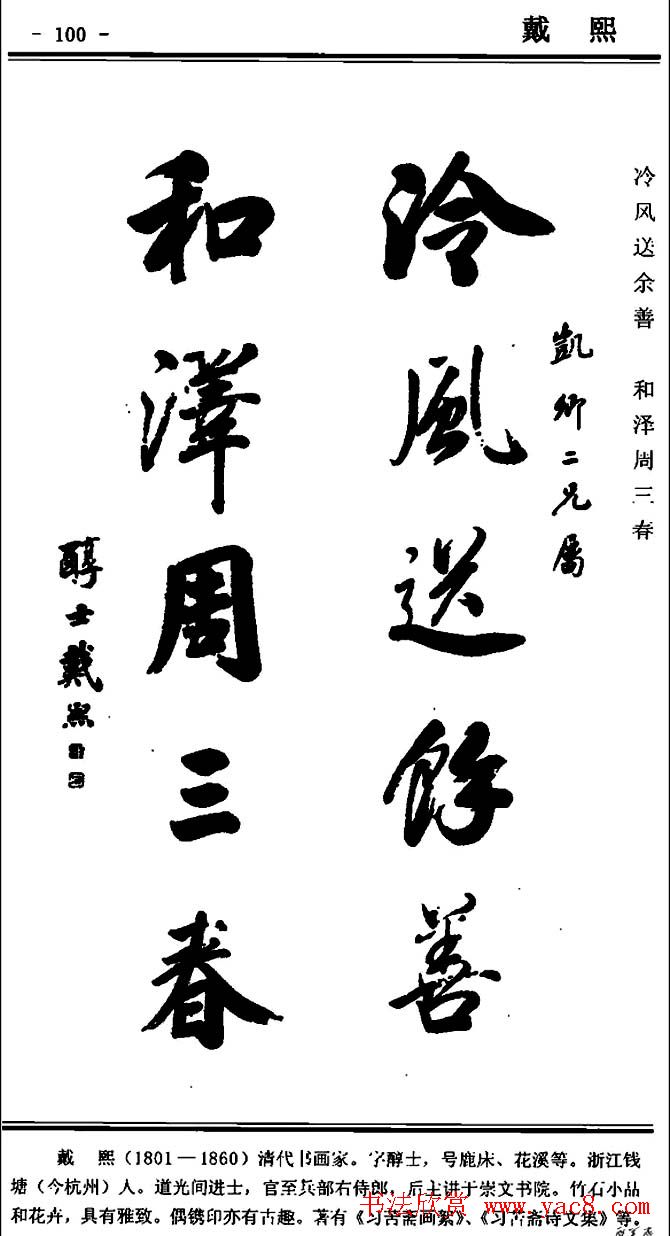 - 100 -
戴 熙
冷风送余善 和泽周三春
凯卿二兄属
泠風送餘善
和澤周三春
醇士戴熙
戴 熙(1801—1860)清代书画家。字醇士,号鹿床、花溪等。浙江钱
塘(今杭州)人。道光间进士,官至兵部右侍郎,后主讲于崇文书院。竹石小品
和花卉,具有雅致。偶镌印亦有古趣。著有《习苦斋画絮》、《习苦斋诗文集》等。
书法欣赏 www.yac8.com